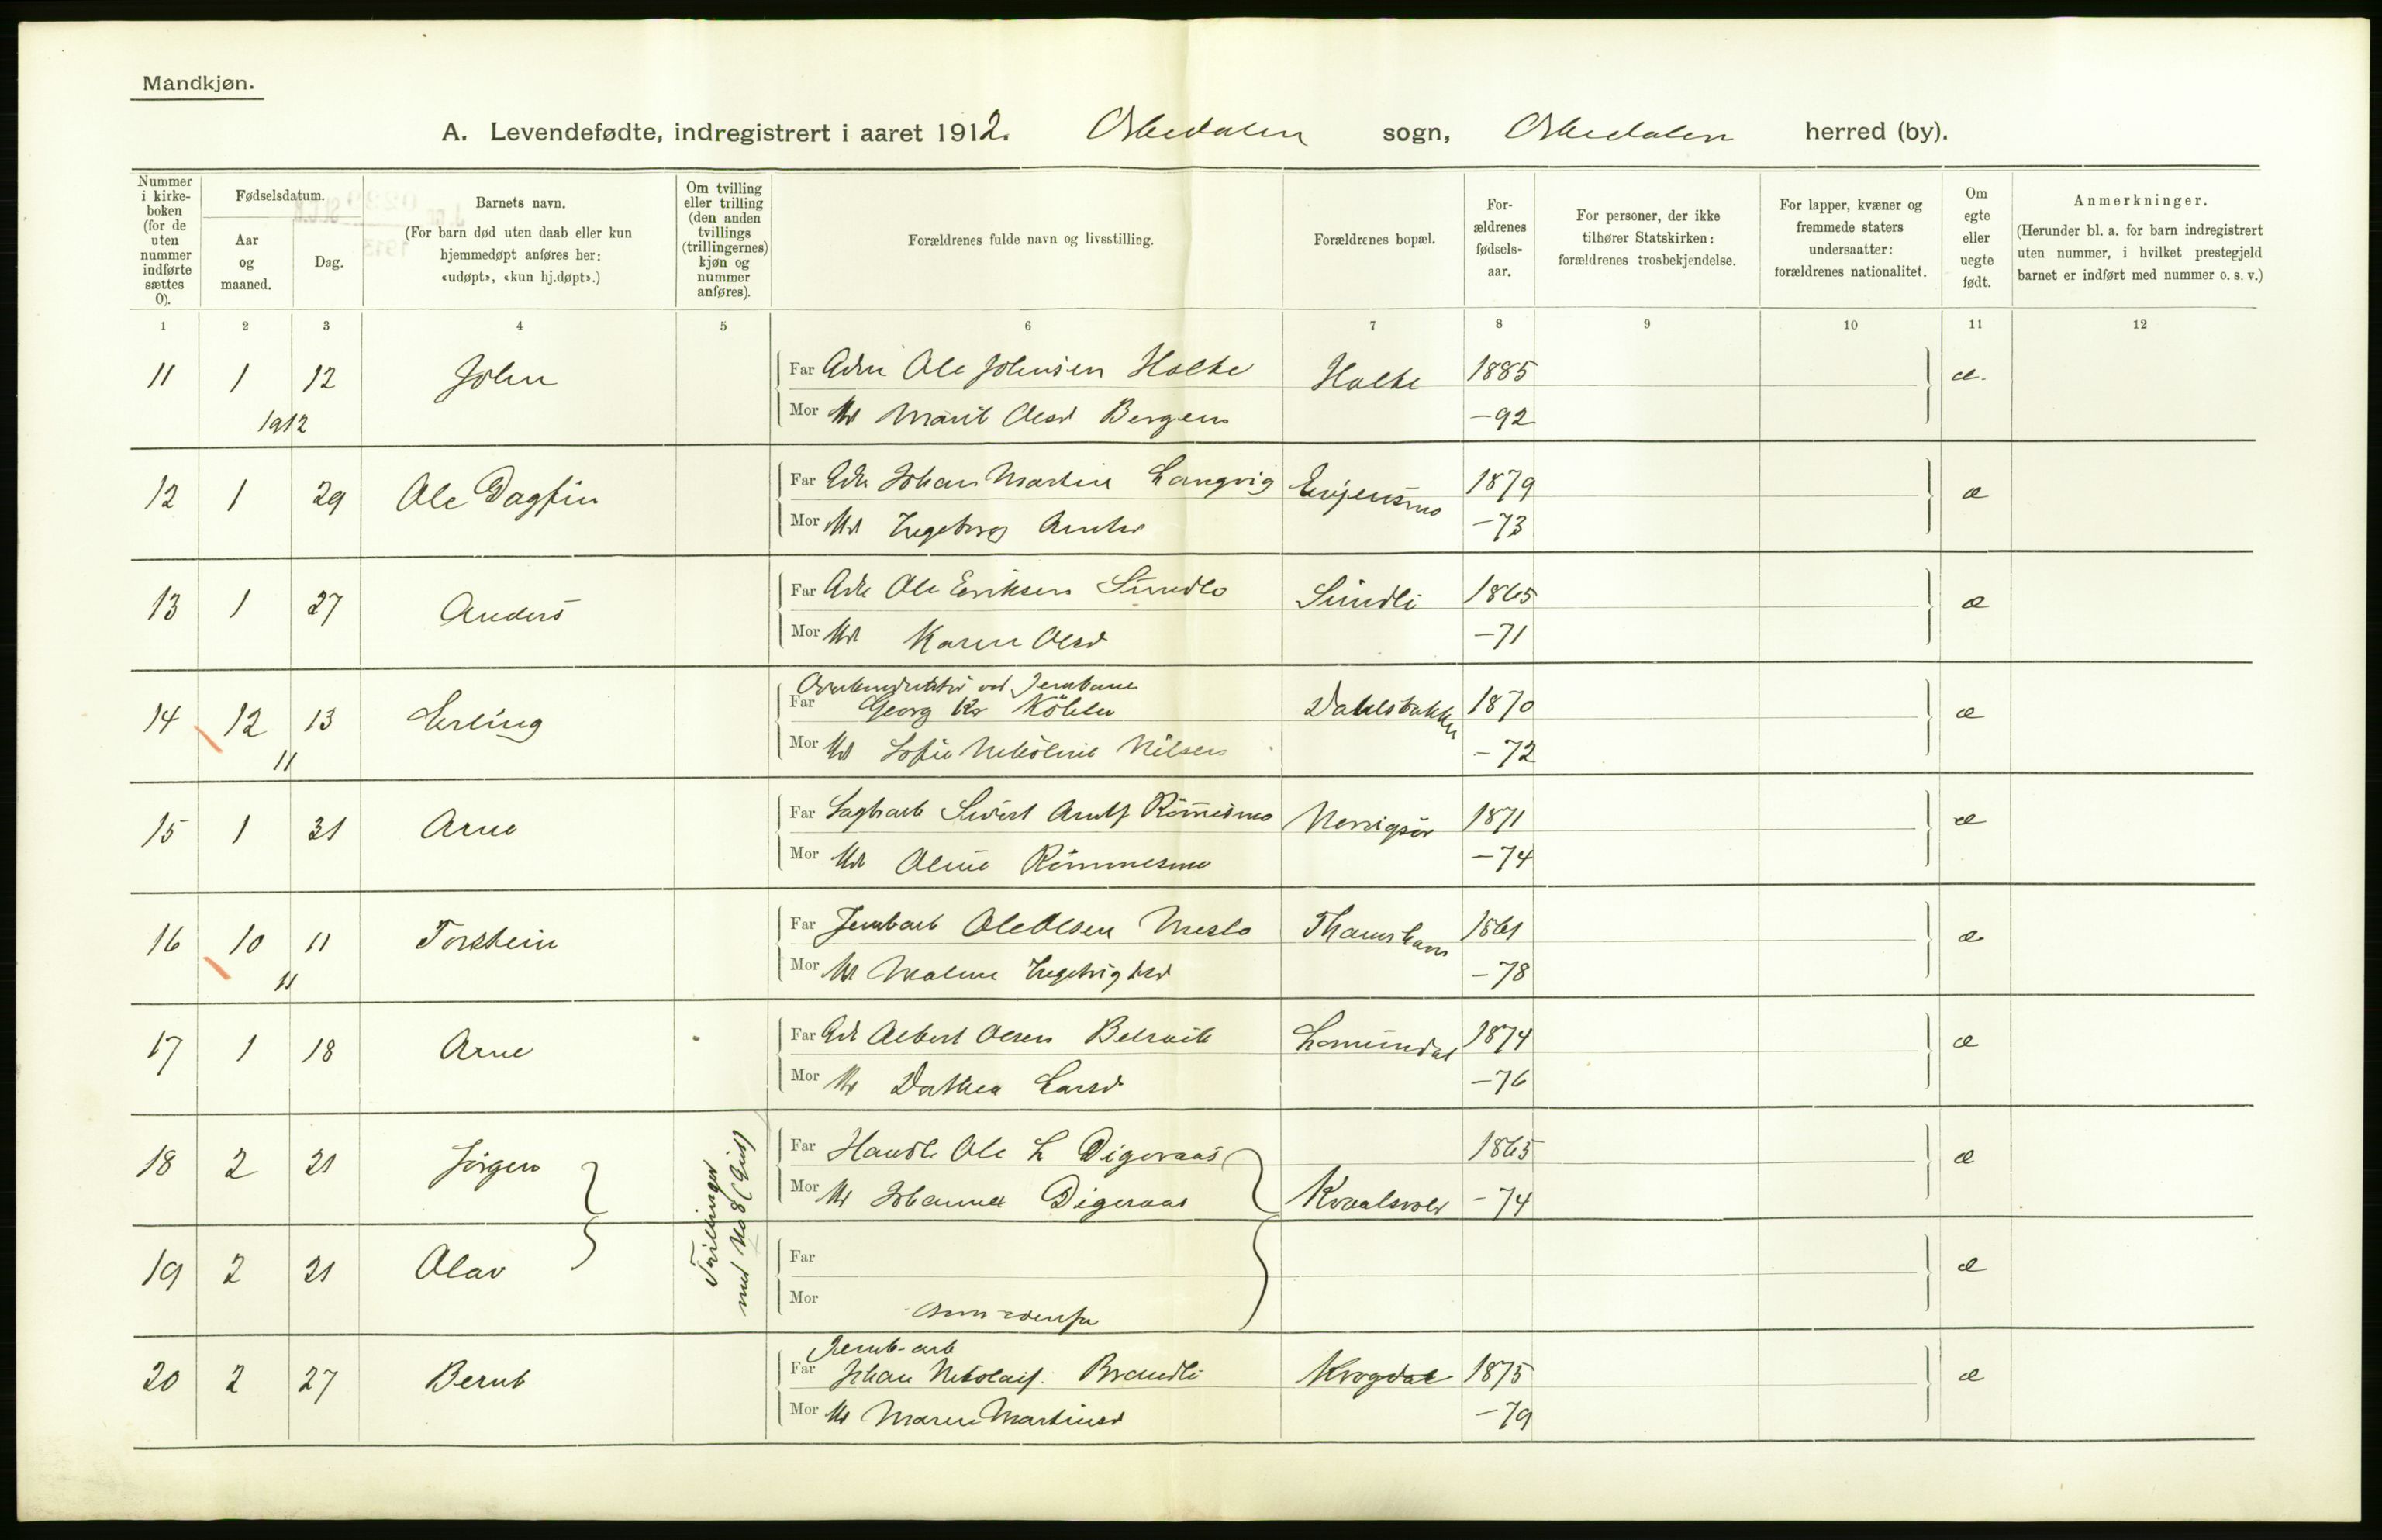 Mandkjøn.
A. Levendefødte, indregistrert i aaret 1912. Orkedalen sogn, Orkedalen herred (by).
Nummer i kirke-boken (for de uten nummer indførte sættes 0).
Fødselsdatum.
Aar og maaned.
Dag.
Barnets navn.
(For barn død uten daab eller kun hjemmedøpt anføres her: «udøpt», «kun hj.døpt».)
Om tvilling eller trilling (den anden tvillings (trillingernes) kjøn og nummer anføres).
Forældrenes fulde navn og livsstilling.
Forældrenes bopæl.
For-ældrenes fødsels-aar.
For personer, der ikke tilhører Statskirken: forældrenes trosbekjendelse.
For lapper, kvæner og fremmede staters undersaatter: forældrenes nationalitet.
Om egte eller uegte født.
Anmerkninger.
(Herunder bl. a. for barn indregistrert uten nummer, i hvilket prestegjeld barnet er indført med nummer o. s. v.)
1 2 3 4 5 6 7 8 9 10 11 12
11 1 12 John Far Ole Johnsen Holte Holte 1885 æ.
1912 Mor Marit Olsd Bergem -92
12 1 29 Ole Dagfin Far Johan Martin Langvig Evjensmo 1879 æ
Mor Ingeborg -73
13 1 27 Anders Far Ole Eriksen Sundlo Sundli 1865 æ
Mor Karen Olsd -71
14 12 13 Erling Far Georg Kr Köhler 1870 æ
11 Mor Sofie Nikoline Nilsen -72
15 1 31 Arne Far Sagbarb Sivert Arntf Römmesmo 1871 æ
Mor Oline Römmesmo -74
16 10 11 Torstein Far Jernbarb Ole Olsen Thamshavn 1861 æ
11 Mor Malene -78
17 1 18 Arne Far Albert Olsen Belsvik Lomundal 1874 æ
Mor Dorthea Larsd -76
18 2 21 Jörgen Trillinger Far Handl Ole L Digeraas 1865 æ
med No 8 Mor Johanna Digeraas -74
19 2 21 Olav Far æ
Mor som ovenfor
20 2 27 Bernt Jernb-arb
Far Johan Nikolaif. Brandli Krogdal 1875 æ
Mor Maren Martinsd -79